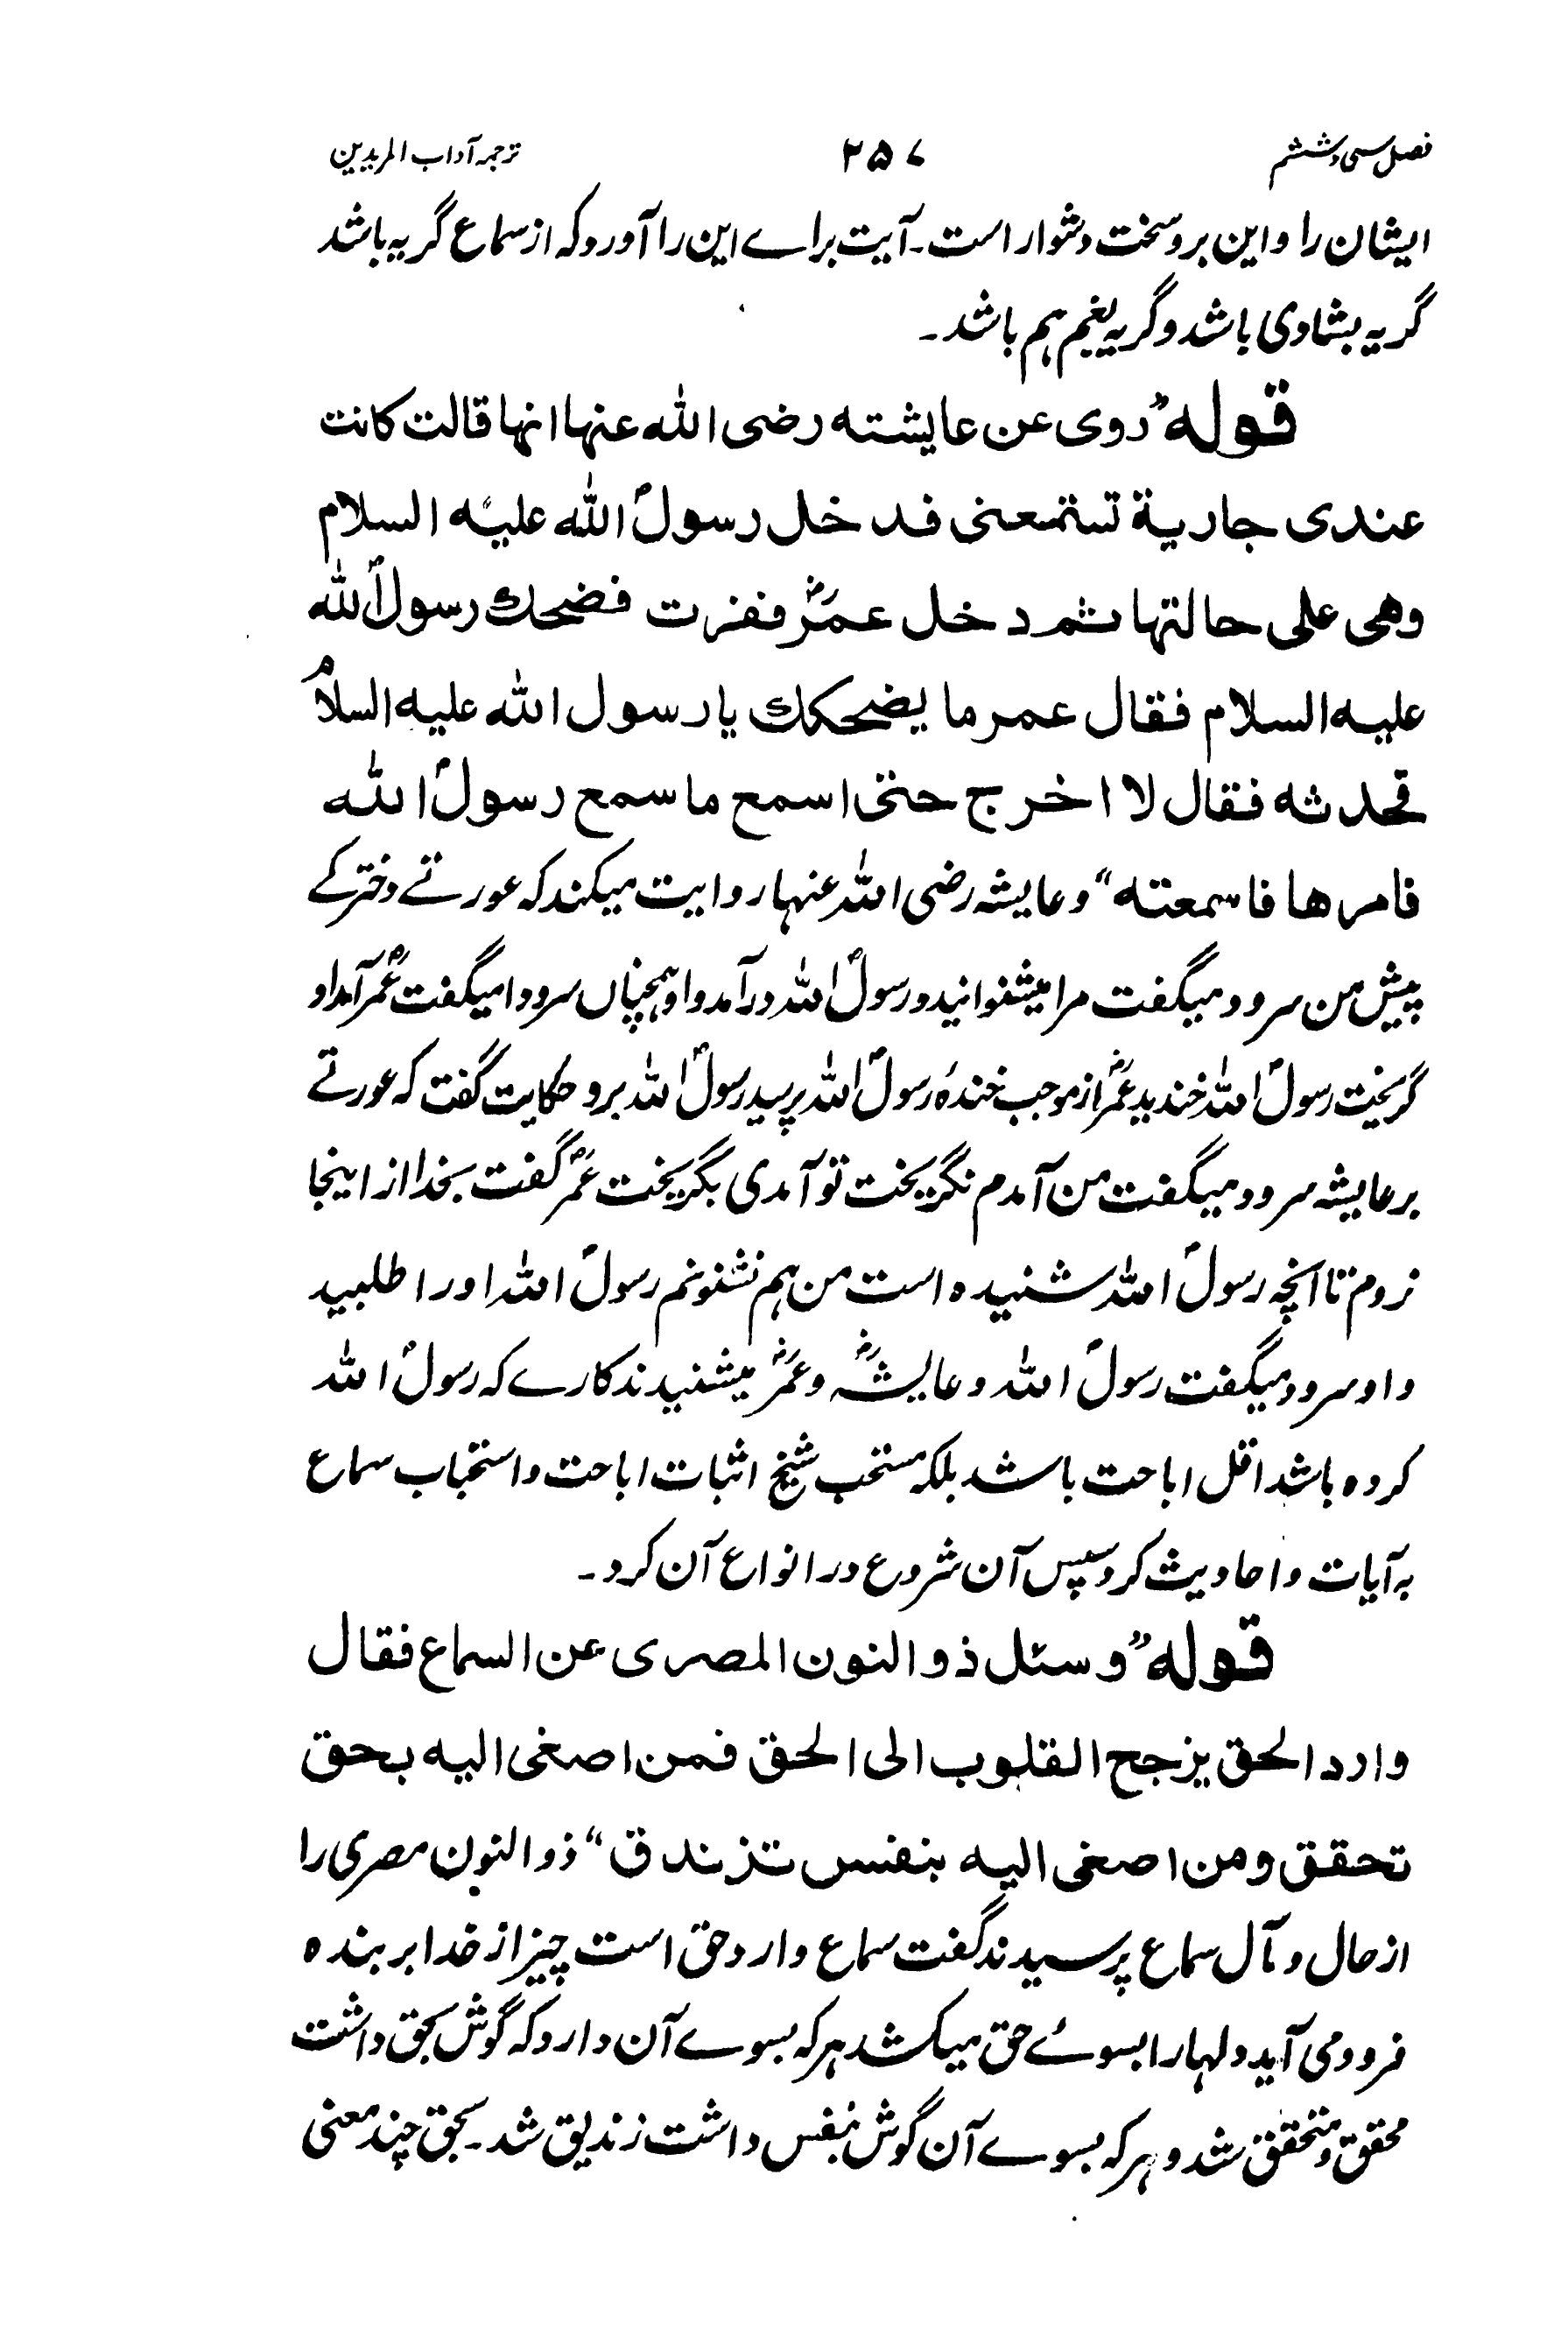 فصل سی و ششم ۲۵۷ ترجمہ آداب المریدین
ایشان را و این برو سخت دشوار است۔ آیت براے این را آورد کہ از سماع گریہ باشد
گریہ بشادی باشد و گریہ بغم ہم باشد۔
قولہ ”روی عن عایشتہ رضی اللہ عنہا انہا قالت کانت
عندی جاریة تستمعنی فدخل رسولؐ اللہ علیہ السلام
وھی علی حالتہا ثم دخل عمرؓ ففزت فضحک رسولؐ اللہ
علیہ السلام فقال عمر ما یضحکک یا رسول اللہ علیہ السلام
فحدثہ فقال لا اخرج حتی اسمع ما سمع رسولؐ اللہ
فامرھا فاسمعتہ“ و عایشہ رضی اللہ عنہا روایت میکند کہ عورتے دخترکے
پیش من سرود میگفت مرا میشنوانید و رسولؐ اللہ در آمد و او ہمچناں سرود امیگفت عمرؓ آمد او
گریخت رسولؐ اللہ خندید عمرؓ از موجب خندۂ رسولؐ اللہ پرسید رسولؐ اللہ برو حکایت گفت کہ عورتے
بر عایشہ سرود میگفت من آمدم نگریخت تو آمدی بگریخت عمرؓ گفت بخدا از اینجا
نروم تا آنچہ رسولؐ اللہ شنیدہ است من ہم نشنونم رسولؐ اللہ او را طلبید
و او سرود میگفت رسولؐ اللہ و عایشہؓ و عمرؓ میشنیدند کارے کہ رسولؐ اللہ
کردہ باشد اقل اباحت باشد بلکہ مستحب شیخ اثبات اباحت و استحباب سماع
بہ آیات و احادیث کرد سپس آن شروع در انواع آن کرد۔
قولہ ”و سئل ذو النون المصری عن السماع فقال
وارد الحق یزجح القلوب الی الحق فمن اصغی الیہ بحق
تحقق ومن اصغی الیہ بنفس تزندق“ ذو النون مصری را
از حال و مآل سماع پرسیدند گفت سماع وارد حق است چیز از خدا بر بندہ
فرود می آید دلہا را بسوئے حق میکشد ہر کہ بسوے آن دارد کہ گوش بحق داشت
محقق و متحقق شد و ہر کہ بسوے آن گوش بنفس داشت زندیق شد۔ بحق چند معنی